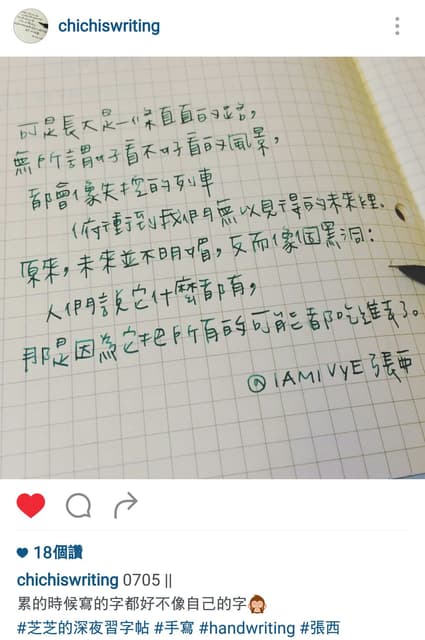 chichiswriting
可是長大是一條直直的路，
無所謂好看不好看的風景，
都會像失控的列車
俯衝到我們無以見得的未來裡。
原來，未來並不明媚，反而像個黑洞：
人們說它什麼都有，
那是因為它把所有的可能都吃進去了。
@iAMIVyE 張西
18個讚
chichiswriting 0705 ||
累的時候寫的字都好不像自己的字🙊
#芝芝的深夜習字帖 #手寫 #handwriting #張西